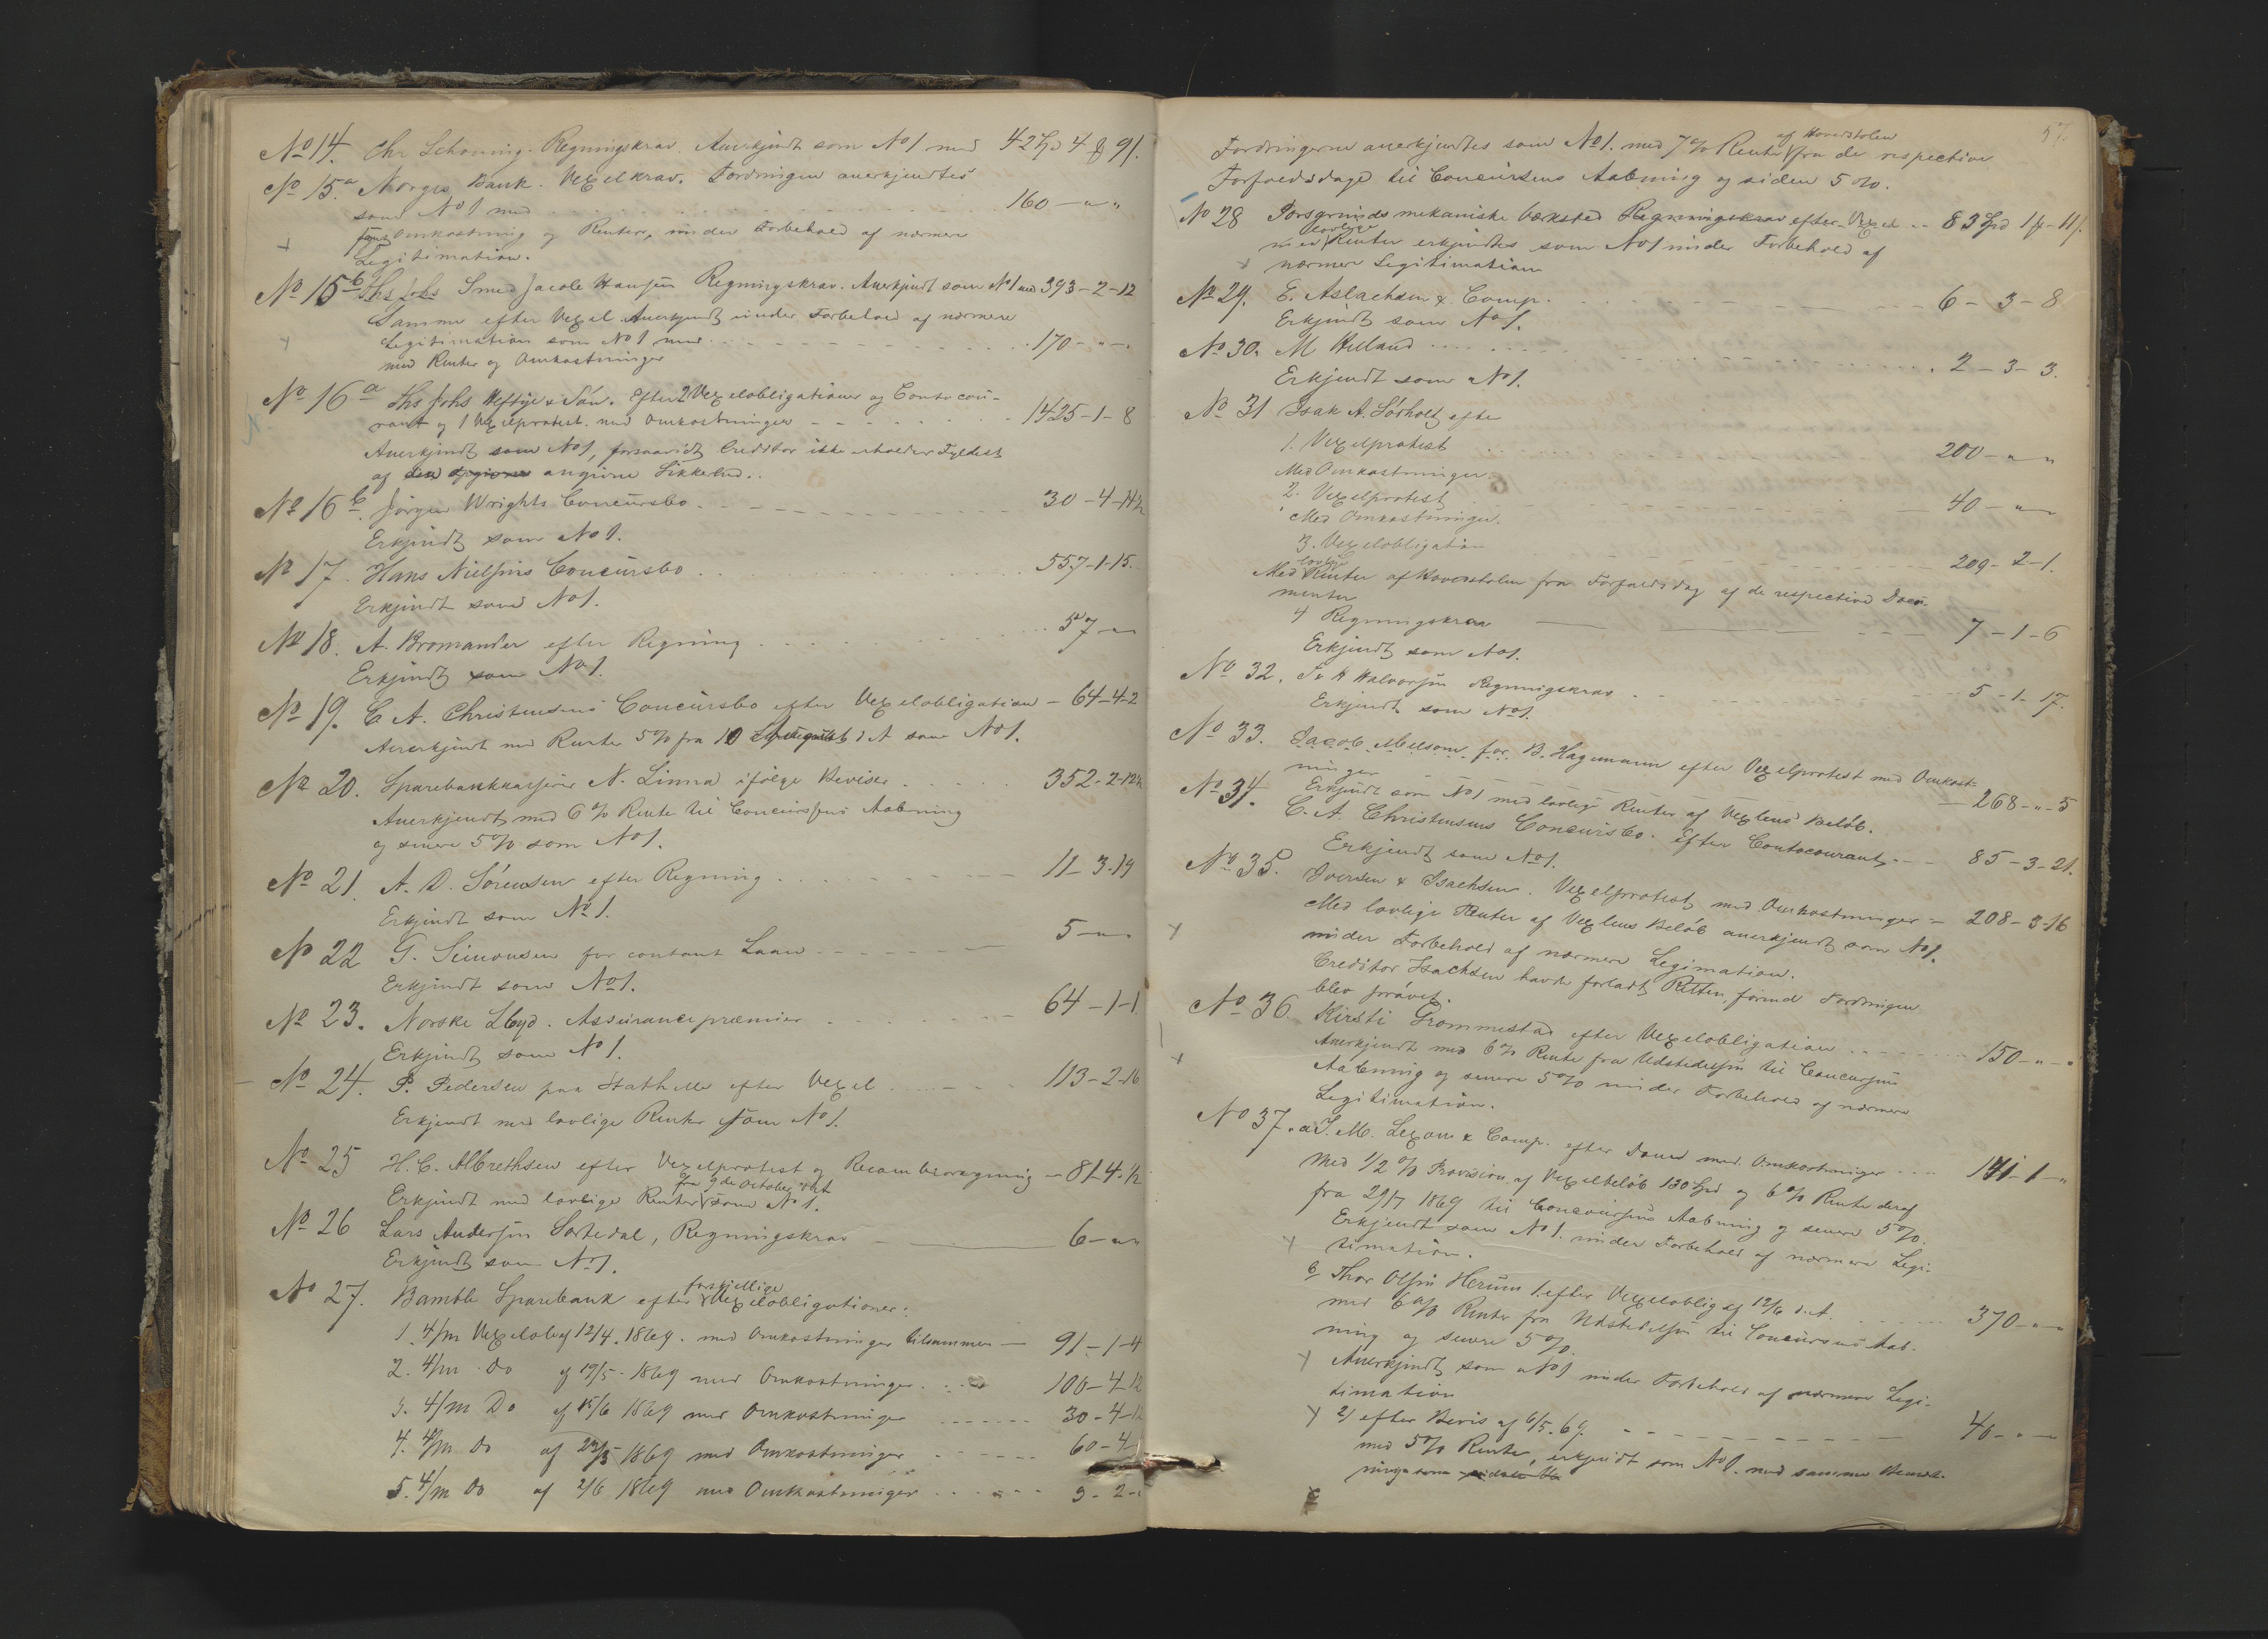 No 14. Chr Schøning. Regningskrav. Anerkjendt som No 1 med 42 Spd 4 ß 9/.
No 15.a Norges Bank. Vexelkrav. Fordringen anerkjendtes
som No 1 med 160 - " - "
samt Omkostning og Renter, under Forbehold af nærmere
Legitimation.
No 15 b Smed Jacob Hansen Regningskrav. Anerkjendt som No 1 med 393-2-12
Samme efter Vexel Anerkjendt under Forbehold af nærmere
Legitimation som No 1 med 170 - " - "
med Renter og Omkostninger
No 16 a Ths Johs Heftye & Søn. Efter 2 Vexelobligationer og Contocou-
rant og 1 Vexelprotest. med Omkostninger 1425-1-8
Anerkjendt som No 1, forsaavidt Creditor ikke erholder Fyldest
af den angivne Sikkerhed.
No 16 b. Jørgen Wrights Concursbo 30-4-
Erkjendt som No 1.
No 17. Hans Nielsens Concursbo 557-1-15.
Erkjendt som No 1.
No 18. A. Bromander efter Regning 57 - "
Erkjendt som No 1.
No 19. C A. Christensens Concursbo efter Vexelobligation - 64-4-2
Anerkjendt med Renter 5% fra 10 d. A som No 1.
No 20. Sparebankkasserer N. Linna ifølge Beviser 352-2-
Anerkjendt med 6% Rente til Concursens Aabning
og senere 5% som No 1.
No 21. A. D. Sørensen efter Regning 11-3-19
Erkjendt som No 1.
No 22 G. Simonsen for contant Laan 5 - " -
Erkjendt som No 1.
No 23. Norske Lloyd. Assurancepræmier 64-1-1
Erkjendt som No 1.
No 24. P. Pedersen paa Stathelle efter Vexel 113-2-16
Erkjendt med lovlige Renter som No 1.
No 25 H. C. Albrethsen efter Vexelprotest og Recambioregning - 81-4-1/2
fra 9de October
Erkjendt med lovlige Renter som No 1.
No 26 Lars Andersen Sortedal, Regningskrav 6 - " "
Erkjendt som No 1.
forskjellige
No 27. Bamble Sparebank efter Vexelobligationer:
1. 4/m Vexelobl af 12/4. 1869. med Omkostninger tilsammen - 91-1-4
2. 4/m Do af 19/5. 1869 med Omkostninger 100-4-12
3. 4/m Do af 15/6 1869 med Omkostninger 30-4-12
4. 4/m Do af 1869 med Omkostninger 60-4-
5. 4/m Do af 2/6 1869 med Omkostninger 3-2-
57.
af Hovedstolen
Fordringerne anerkjendtes som No 1. med 7% Renter fra de respective
Forfaldsdage til Concursens Aabning og siden 5%.
No 28 Porsgrunds mekaniske Værksted Regningskrav efter Vexel 83 Spd 1 ß - 11/.
lovlige
med Renter erkjendtes som No 1 under Forbehold af
nærmere Legitimation
No 29. E. Aslachsen & Comp. 6-3-8
Erkjendt som No 1.
No 30. M Helland 2-3-3.
Erkjendt som No 1.
No 31 Isak A. Sørholt efter
1. Vexelprotest 200 - " "
Med Omkostninger
2. Vexelprotest 40 - " -
Med Omkostninger.
3. Vexelobligation 209-2-1.
lovlige
Med Renter af Hovedstolen fra Forfaldsdag af de respective Docu-
menter
4 Regningskrav 7-1-6
Erkjendt som No 1.
No 32. H Halvorsen Regningskrav 5-1-17.
Erkjendt som No 1.
No 33. Jacob Melsom for B. Hagemann efter Vexelprotest med Omkost-
ninger 268 - " - 5
Erkjendt som No 1 med lovlige Renter af Vexlens Beløb.
No 34. C. A. Christensens Concursbo. Efter Contocourant 85-3-21.
Erkjendt som No 1.
No 35. Iversen & Isachsen. Vexelprotest med Omkostninger - 208-3-16
Med lovlige Renter af Vexlens Beløb anerkjendt som No 1.
under Forbehold af nærmere Legimation.
Creditor Isachsen havde forladt Retten førend Fordringen
blev prøvet.
No 36. Kirsti Grommestad efter Vexelobligation 150 - " - "
Anerkjendt med 6% Rente fra Udstedelsen til Concursens
Aabning og senere 5% under Forbehold af nærmere
Legitimation.
No 37. a J. M. Lexow & Comp. efter Dom med Omkostninger 141-1-"
Med 1/2 % Provision af Vexelbeløb 130 Spd og 6% Rente deraf
fra 29/7 1869 til Concursens Aabning og senere 5%.
Erkjendt som No 1. under Forbehold af nærmere Legi-
timation.
b Thor Olsen Herum 1. efter Vexeloblig af 12/6 d. A. 370 - " -
med 6% Renter fra Udstedelsen til Concursens Aab-
ning og senere 5%.
Anerkjendt som No 1 under Forbehold af nærmere Legi-
timation
2) efter Bevis af 6/5. 69. 40 - " -
med 5% Rente, erkjendt som No 1. med samme Bemærk-
ning som